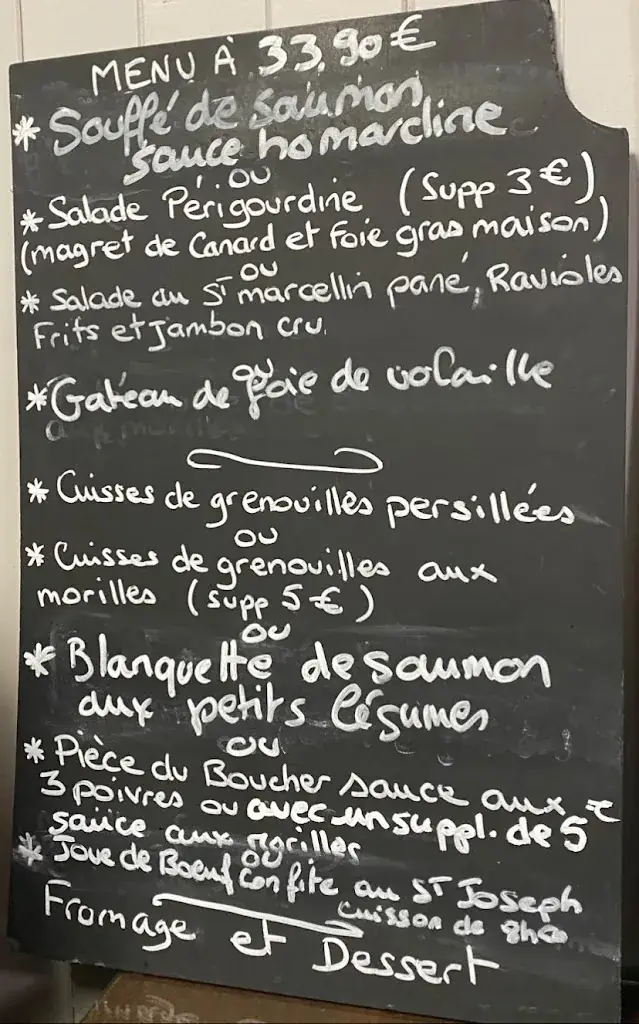 MENU À 33,90 €
* Souffé de saumon
sauce homardine
ou
* Salade Périgourdine (Supp 3 €)
(magret de Canard et foie gras maison)
ou
* Salade au ST marcellin pané, Ravioles
Frits et Jambon cru.
ou
* Gateau de foie de volaille
* Cuisses de grenouilles persillées
ou
* Cuisses de grenouilles aux
morilles (supp 5 €)
ou
* Blanquette de saumon
aux petits légumes
ou
* Pièce du Boucher sauce aux
3 poivres ou avec un suppl. de 5 €
sauce aux morilles
ou
* Joue de Boeuf confite au ST Joseph
cuisson de 8h00
Fromage et Dessert